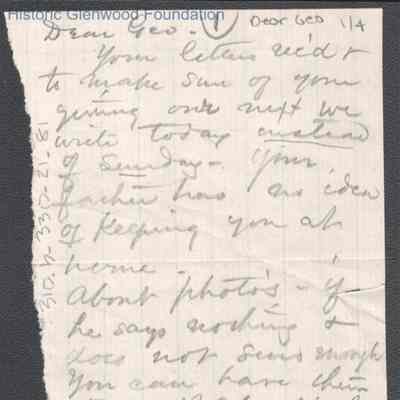 Historic Glenwood Foundation
Dear Geo. 1 Dear Geo 1/4
Your letters rec'd &
to make sure of your
getting our next we
write today instead
of Sunday. Your
father has no idea
of keeping you at
home.
About photos - if
he says nothing &
does not send enough
You can have them